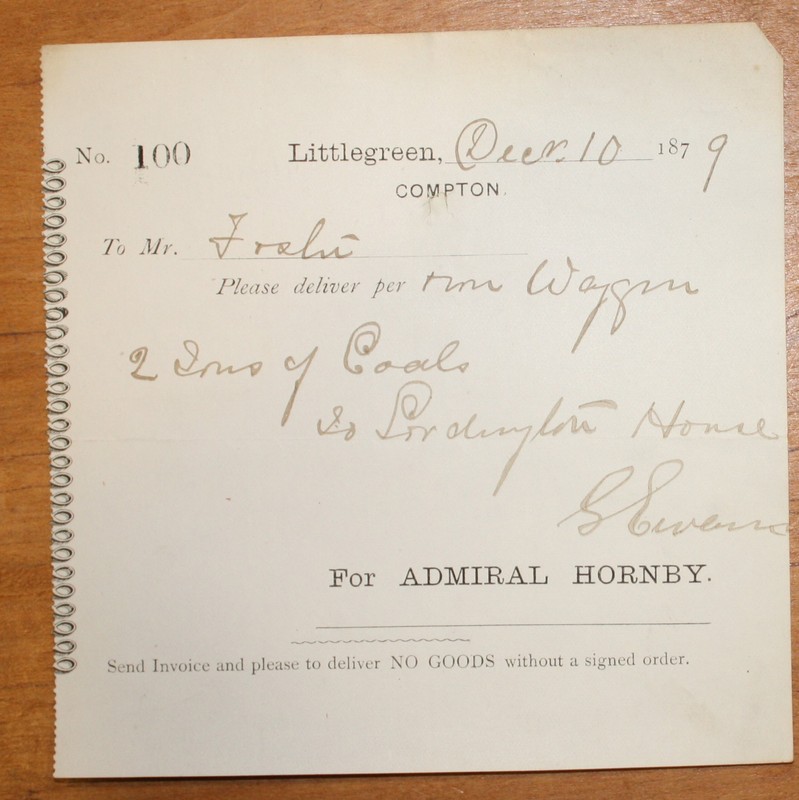 No. 100 Littlegreen, Decr. 10 1879
COMPTON.
To Mr.
Please deliver per Waggon
2 Tons of Coals
To Lordington House
G Evans
For ADMIRAL HORNBY.
Send Invoice and please to deliver NO GOODS without a signed order.